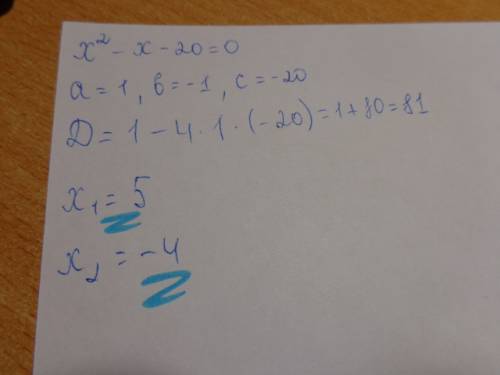 x² - x - 20 = 0
a = 1, b = -1, c = -20
D = 1 - 4 · 1 · (-20) = 1 + 80 = 81
x₁ = 5
x₂ = -4